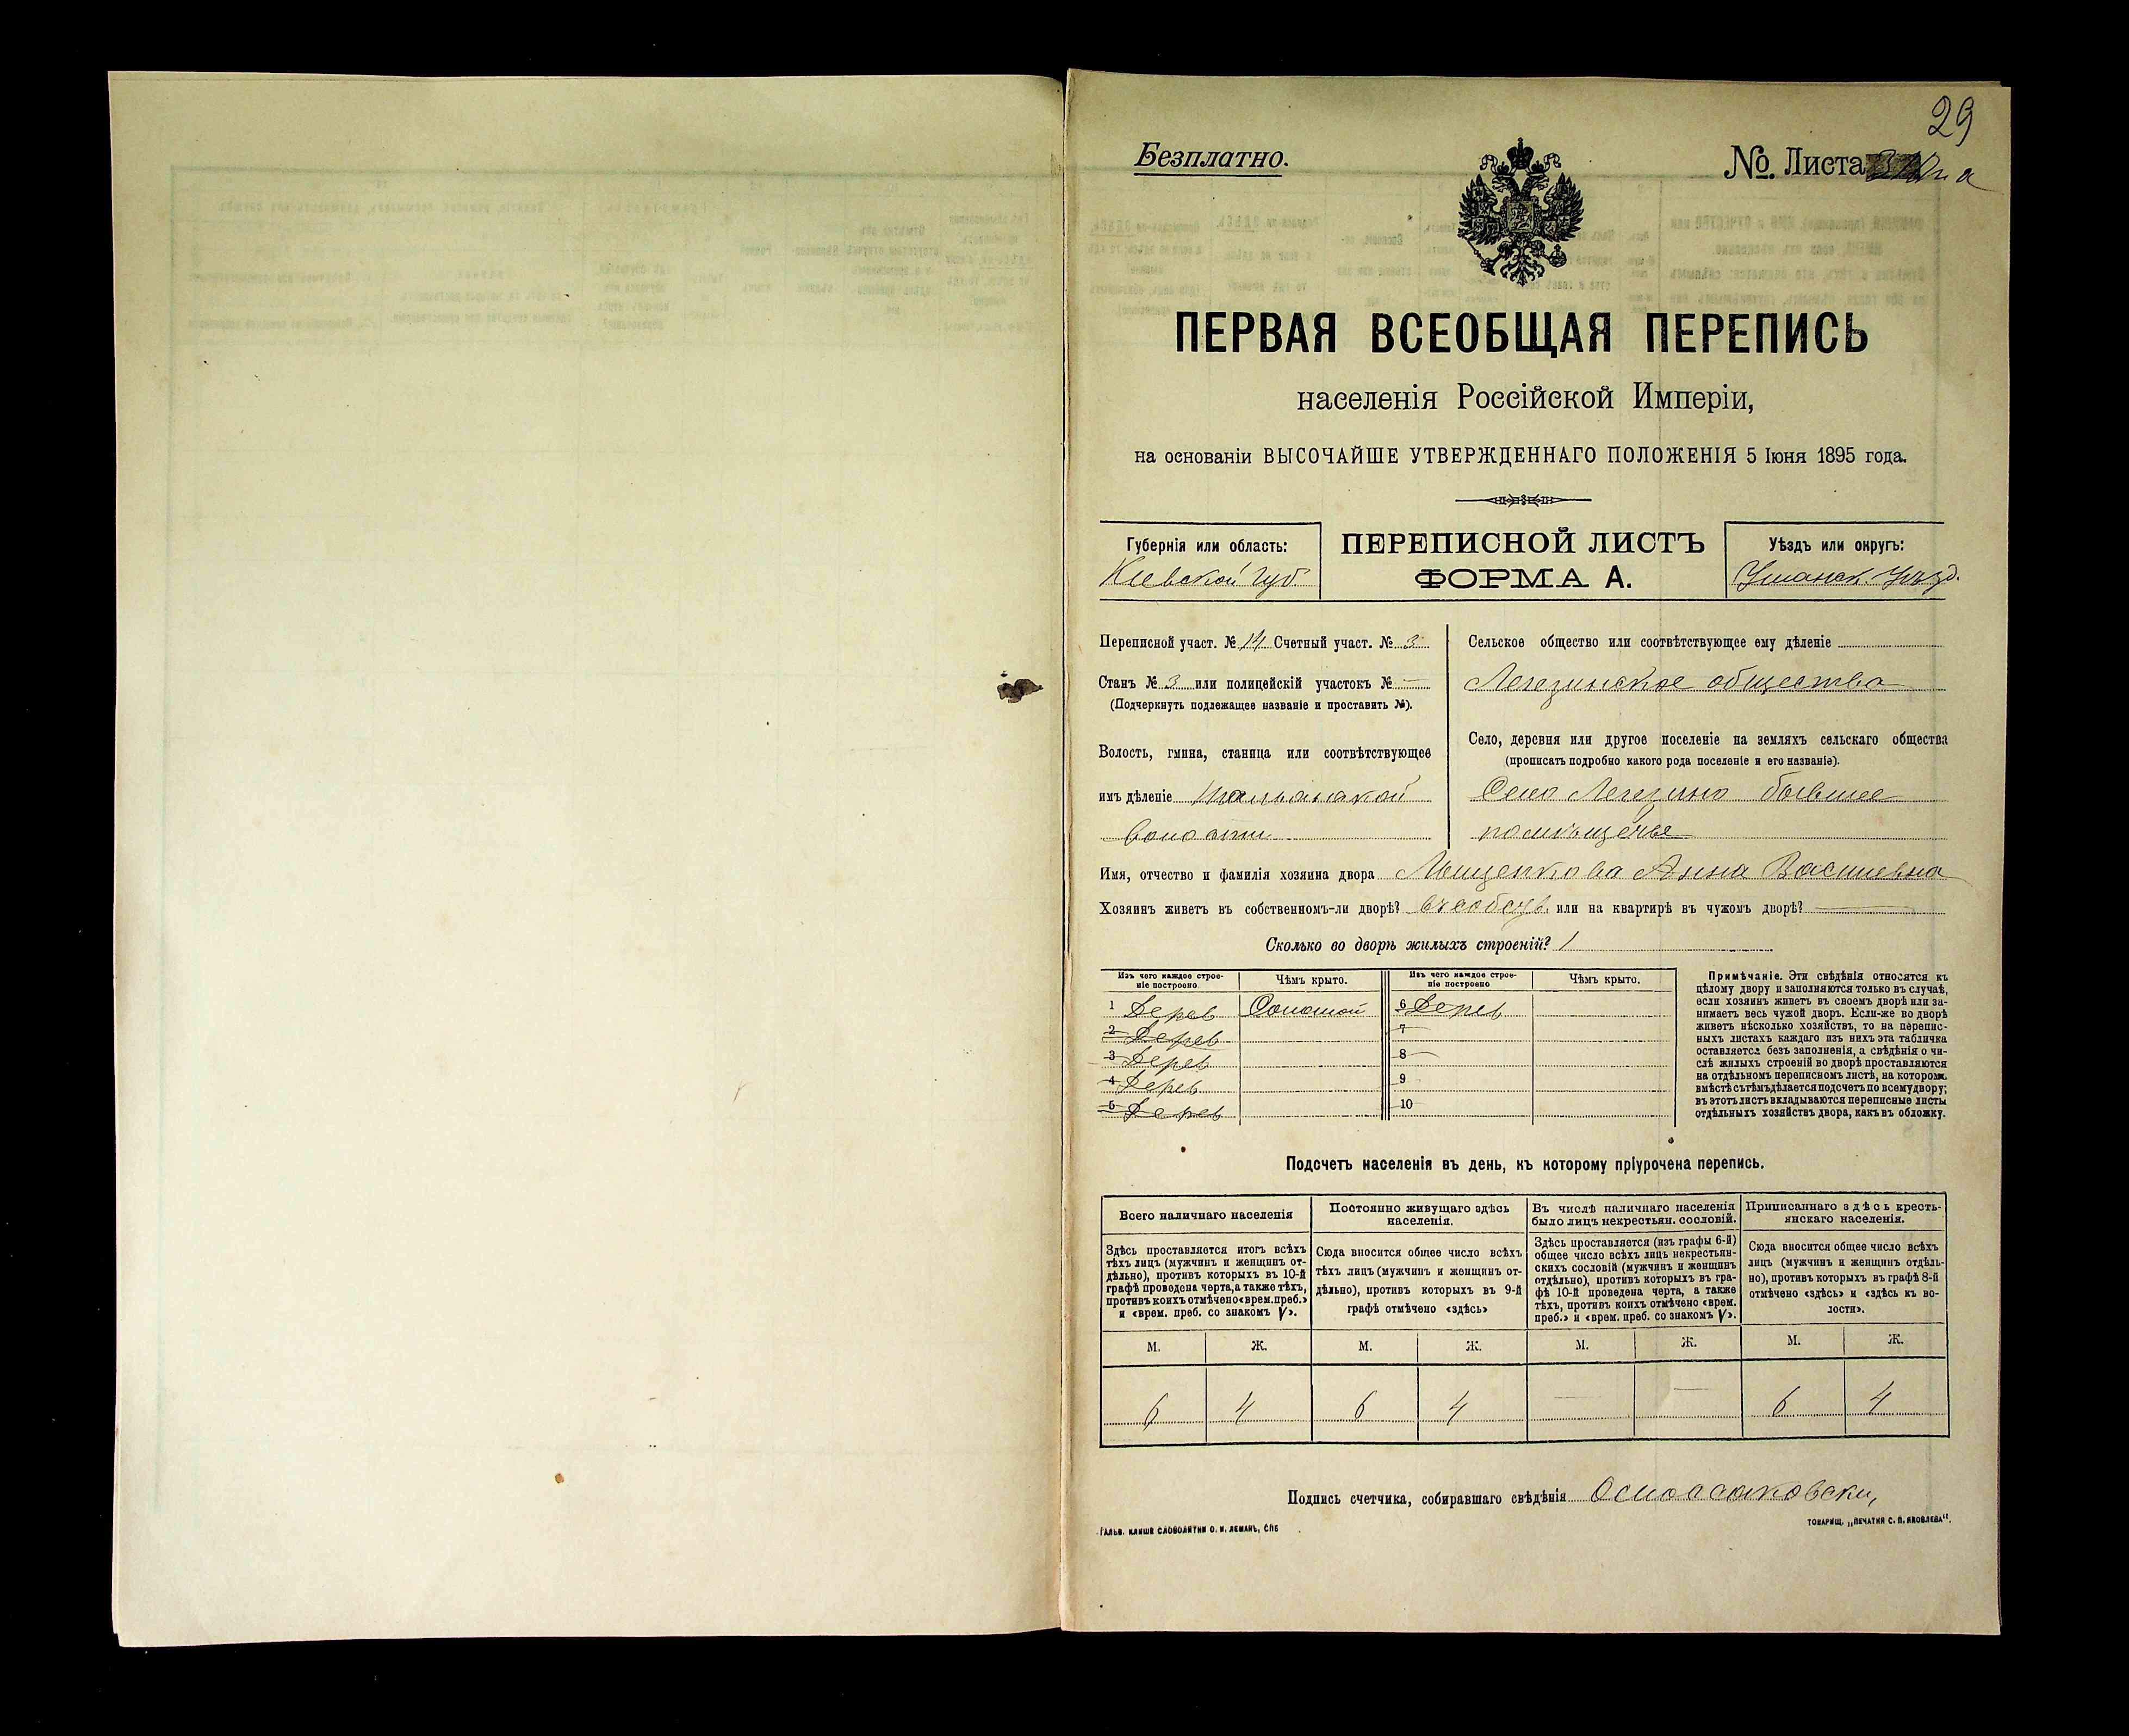 29
Безплатно.
№. Листа
ПЕРВАЯ ВСЕОБЩАЯ ПЕРЕПИСЬ
населенія Россійской Имперіи,
на основаніи ВЫСОЧАЙШЕ УТВЕРЖДЕННАГО ПОЛОЖЕНІЯ 5 Іюня 1895 года.
Губернія или область:
Кіевской губ
ПЕРЕПИСНОЙ ЛИСТЪ
ФОРМА А.
Уѣздъ или округъ:
Уманск. Уѣзд.
Переписной участ. № 14 Счетный участ. № 3
Станъ № 3 или полицейскій участокъ № —
(Подчеркнуть подлежащее названіе и проставить №).
Волость, гмина, станица или соотвѣтствующее
имъ дѣленіе Тальянской
волости
Сельское общество или соотвѣтствующее ему дѣленіе
Легезинское общества
Село, деревня или другое поселеніе на земляхъ сельскаго общества
(прописать подробно какого рода поселеніе и его названіе).
Село Легезино бывшее
помѣщечье
Имя, отчество и фамилія хозяина двора Мищенкова Анна Васильевна
Хозяинъ живетъ въ собственномъ-ли дворѣ? или на квартирѣ въ чужомъ дворѣ? —
Сколько во дворѣ жилыхъ строеній? 1
Изъ чего каждое строе-
ніе построено
Чѣмъ крыто.
Изъ чего каждое строе-
ніе построено
Чѣмъ крыто.
1 Дерев Соломой 6 Дерев
2 Дерев 7
3 Дерев 8
4 Дерев 9
5 Дерев 10
Примѣчаніе. Эти свѣдѣнія относятся къ
цѣлому двору и заполняются только въ случаѣ,
если хозяинъ живетъ въ своемъ дворѣ или за-
нимаетъ весь чужой дворъ. Если-же во дворѣ
живетъ нѣсколько хозяйствъ, то на перепис-
ныхъ листахъ каждаго изъ нихъ эта табличка
оставляется безъ заполненія, а свѣдѣнія о чи-
слѣ жилыхъ строеній во дворѣ проставляются
на отдѣльномъ переписномъ листѣ, на которомъ
вмѣстѣ съ тѣмъ дѣлается подсчетъ по всему двору;
въ этотъ листъ вкладываются переписные листы
отдѣльныхъ хозяйствъ двора, какъ въ обложку.
Подсчетъ населенія въ день, къ которому пріурочена перепись.
Всего наличнаго населенія
Здѣсь проставляется итогъ всѣхъ
тѣхъ лицъ (мужчинъ и женщинъ от-
дѣльно), противъ которыхъ въ 10-й
графѣ проведена черта, а также тѣхъ,
противъ коихъ отмѣчено «врем. преб.»
и «врем. преб. со знакомъ V».
Постоянно живущаго здѣсь
населенія.
Сюда вносится общее число всѣхъ
тѣхъ лицъ (мужчинъ и женщинъ от-
дѣльно), противъ которыхъ въ 9-й
графѣ отмѣчено «здѣсь»
Въ числѣ наличнаго населенія
было лицъ некрестьян. сословій.
Здѣсь проставляется (изъ графы 6-й)
общее число всѣхъ лицъ некрестьян-
скихъ сословій (мужчинъ и женщинъ
отдѣльно), противъ которыхъ въ гра-
фѣ 10-й проведена черта, а также
тѣхъ, противъ коихъ отмѣчено «врем.
преб.» и «врем. преб. со знакомъ V».
Приписаннаго здѣсь кресть-
янскаго населенія.
Сюда вносится общее число всѣхъ
лицъ (мужчинъ и женщинъ отдѣль-
но), противъ которыхъ въ графѣ 8-й
отмѣчено «здѣсь» и «здѣсь къ во-
лости».
М. Ж. М. Ж. М. Ж. М. Ж.
6 4 6 4 — — 6 4
Подпись счетчика, собиравшаго свѣдѣнія
Гальв. клише словолитни О. И. Леманъ, СПБ
Товарищ. „Печатня С. П. Яковлева“.